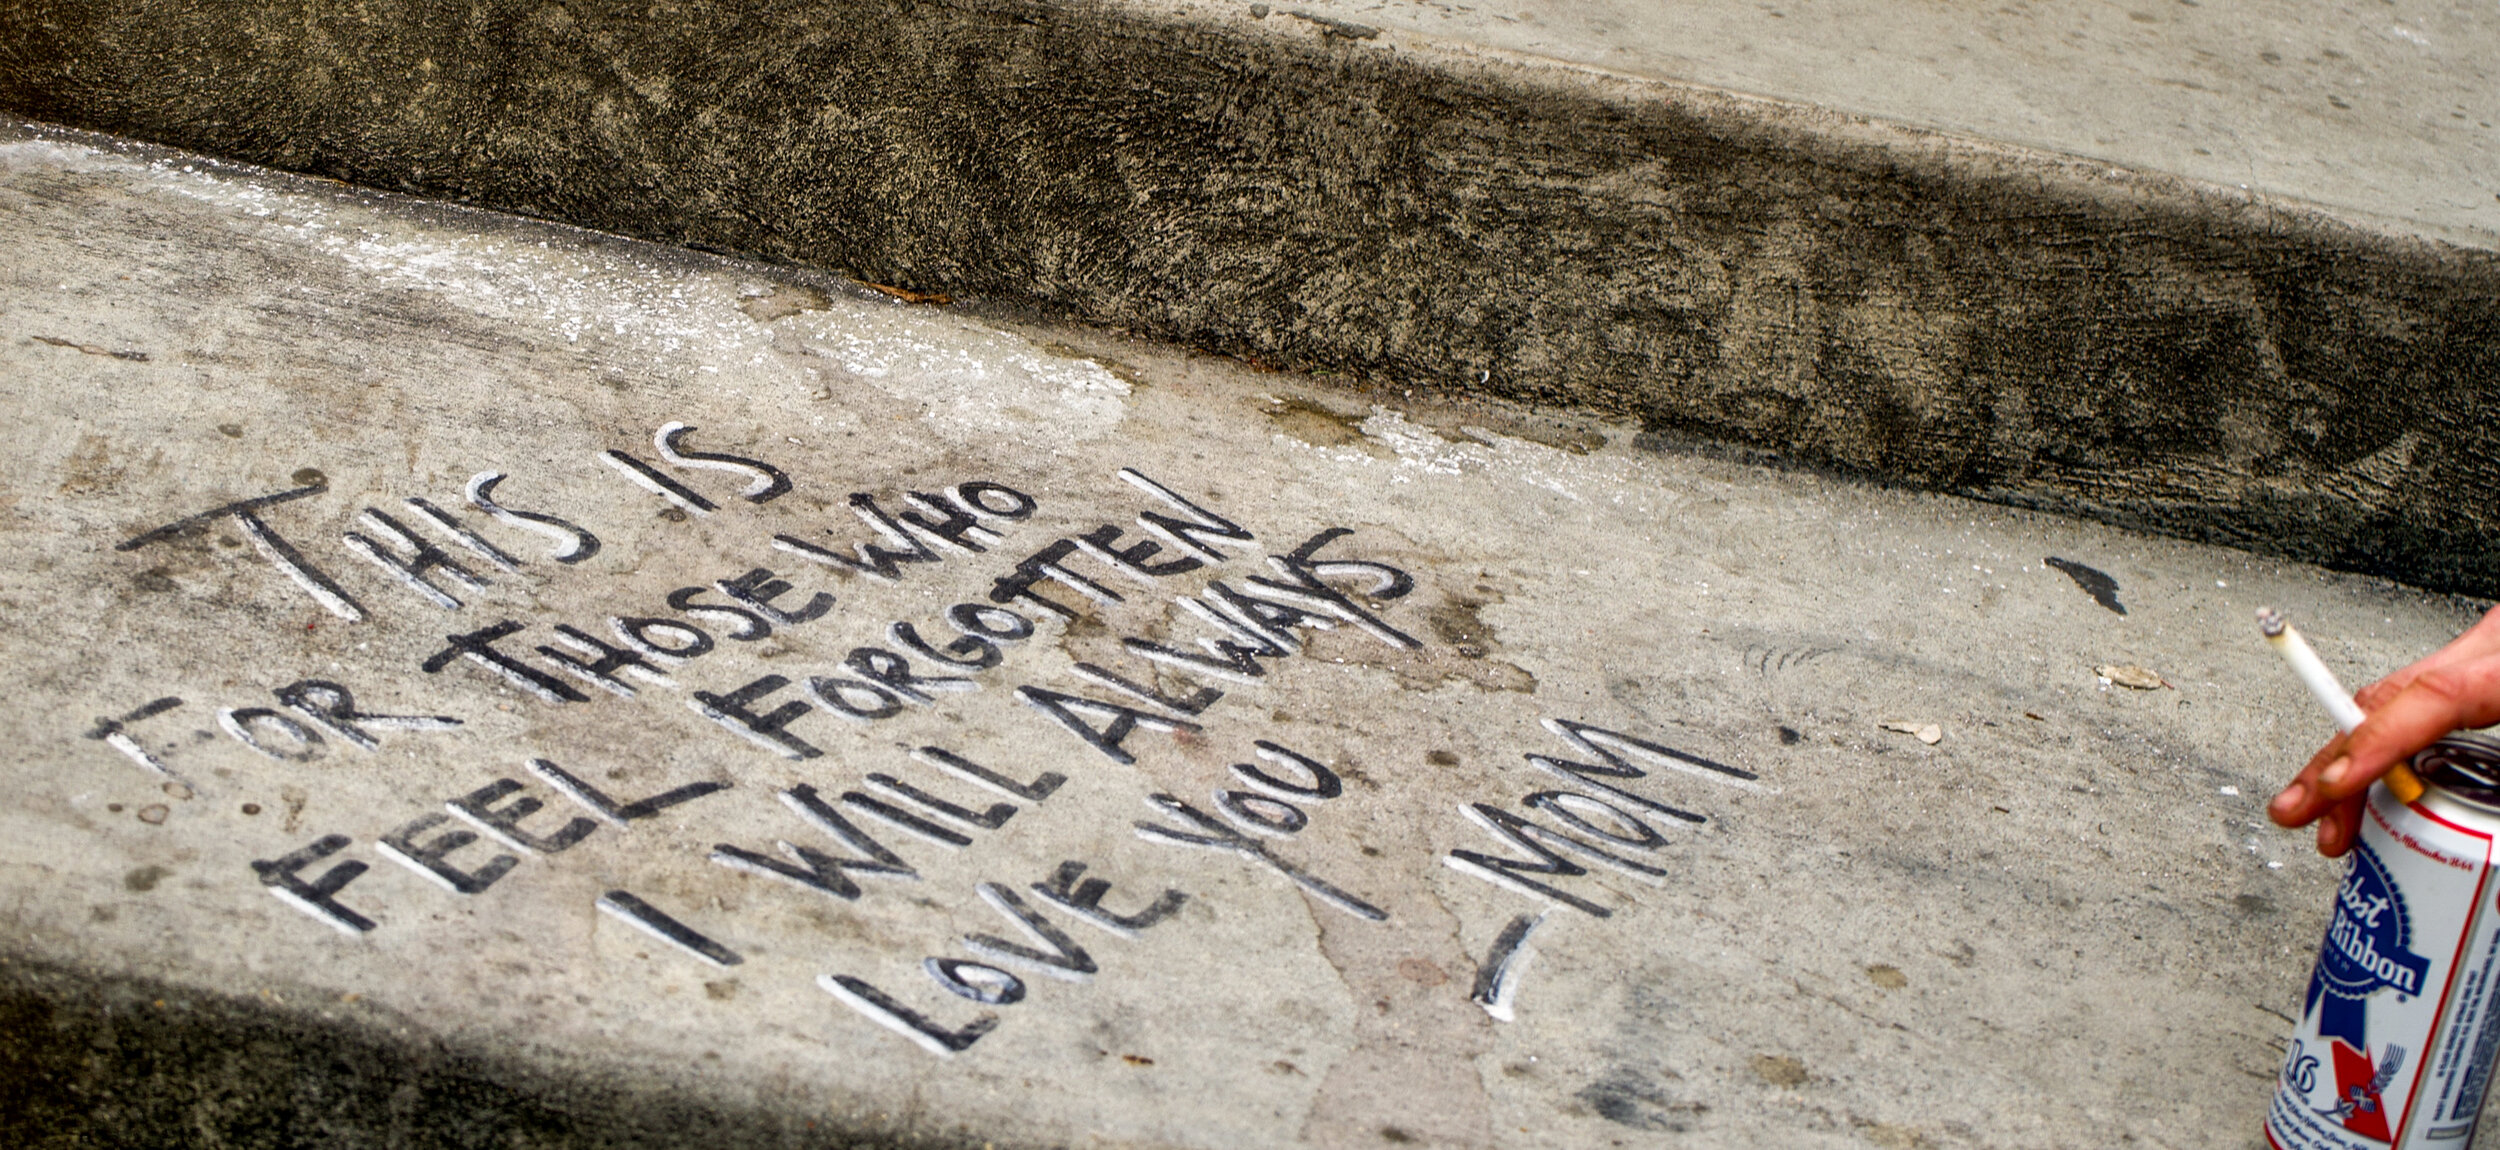 THIS IS
FOR THOSE WHO
FEEL FORGOTTEN
I WILL ALWAYS
LOVE YOU
- MOM
Milwaukee 1844
Pabst
Blue Ribbon
16